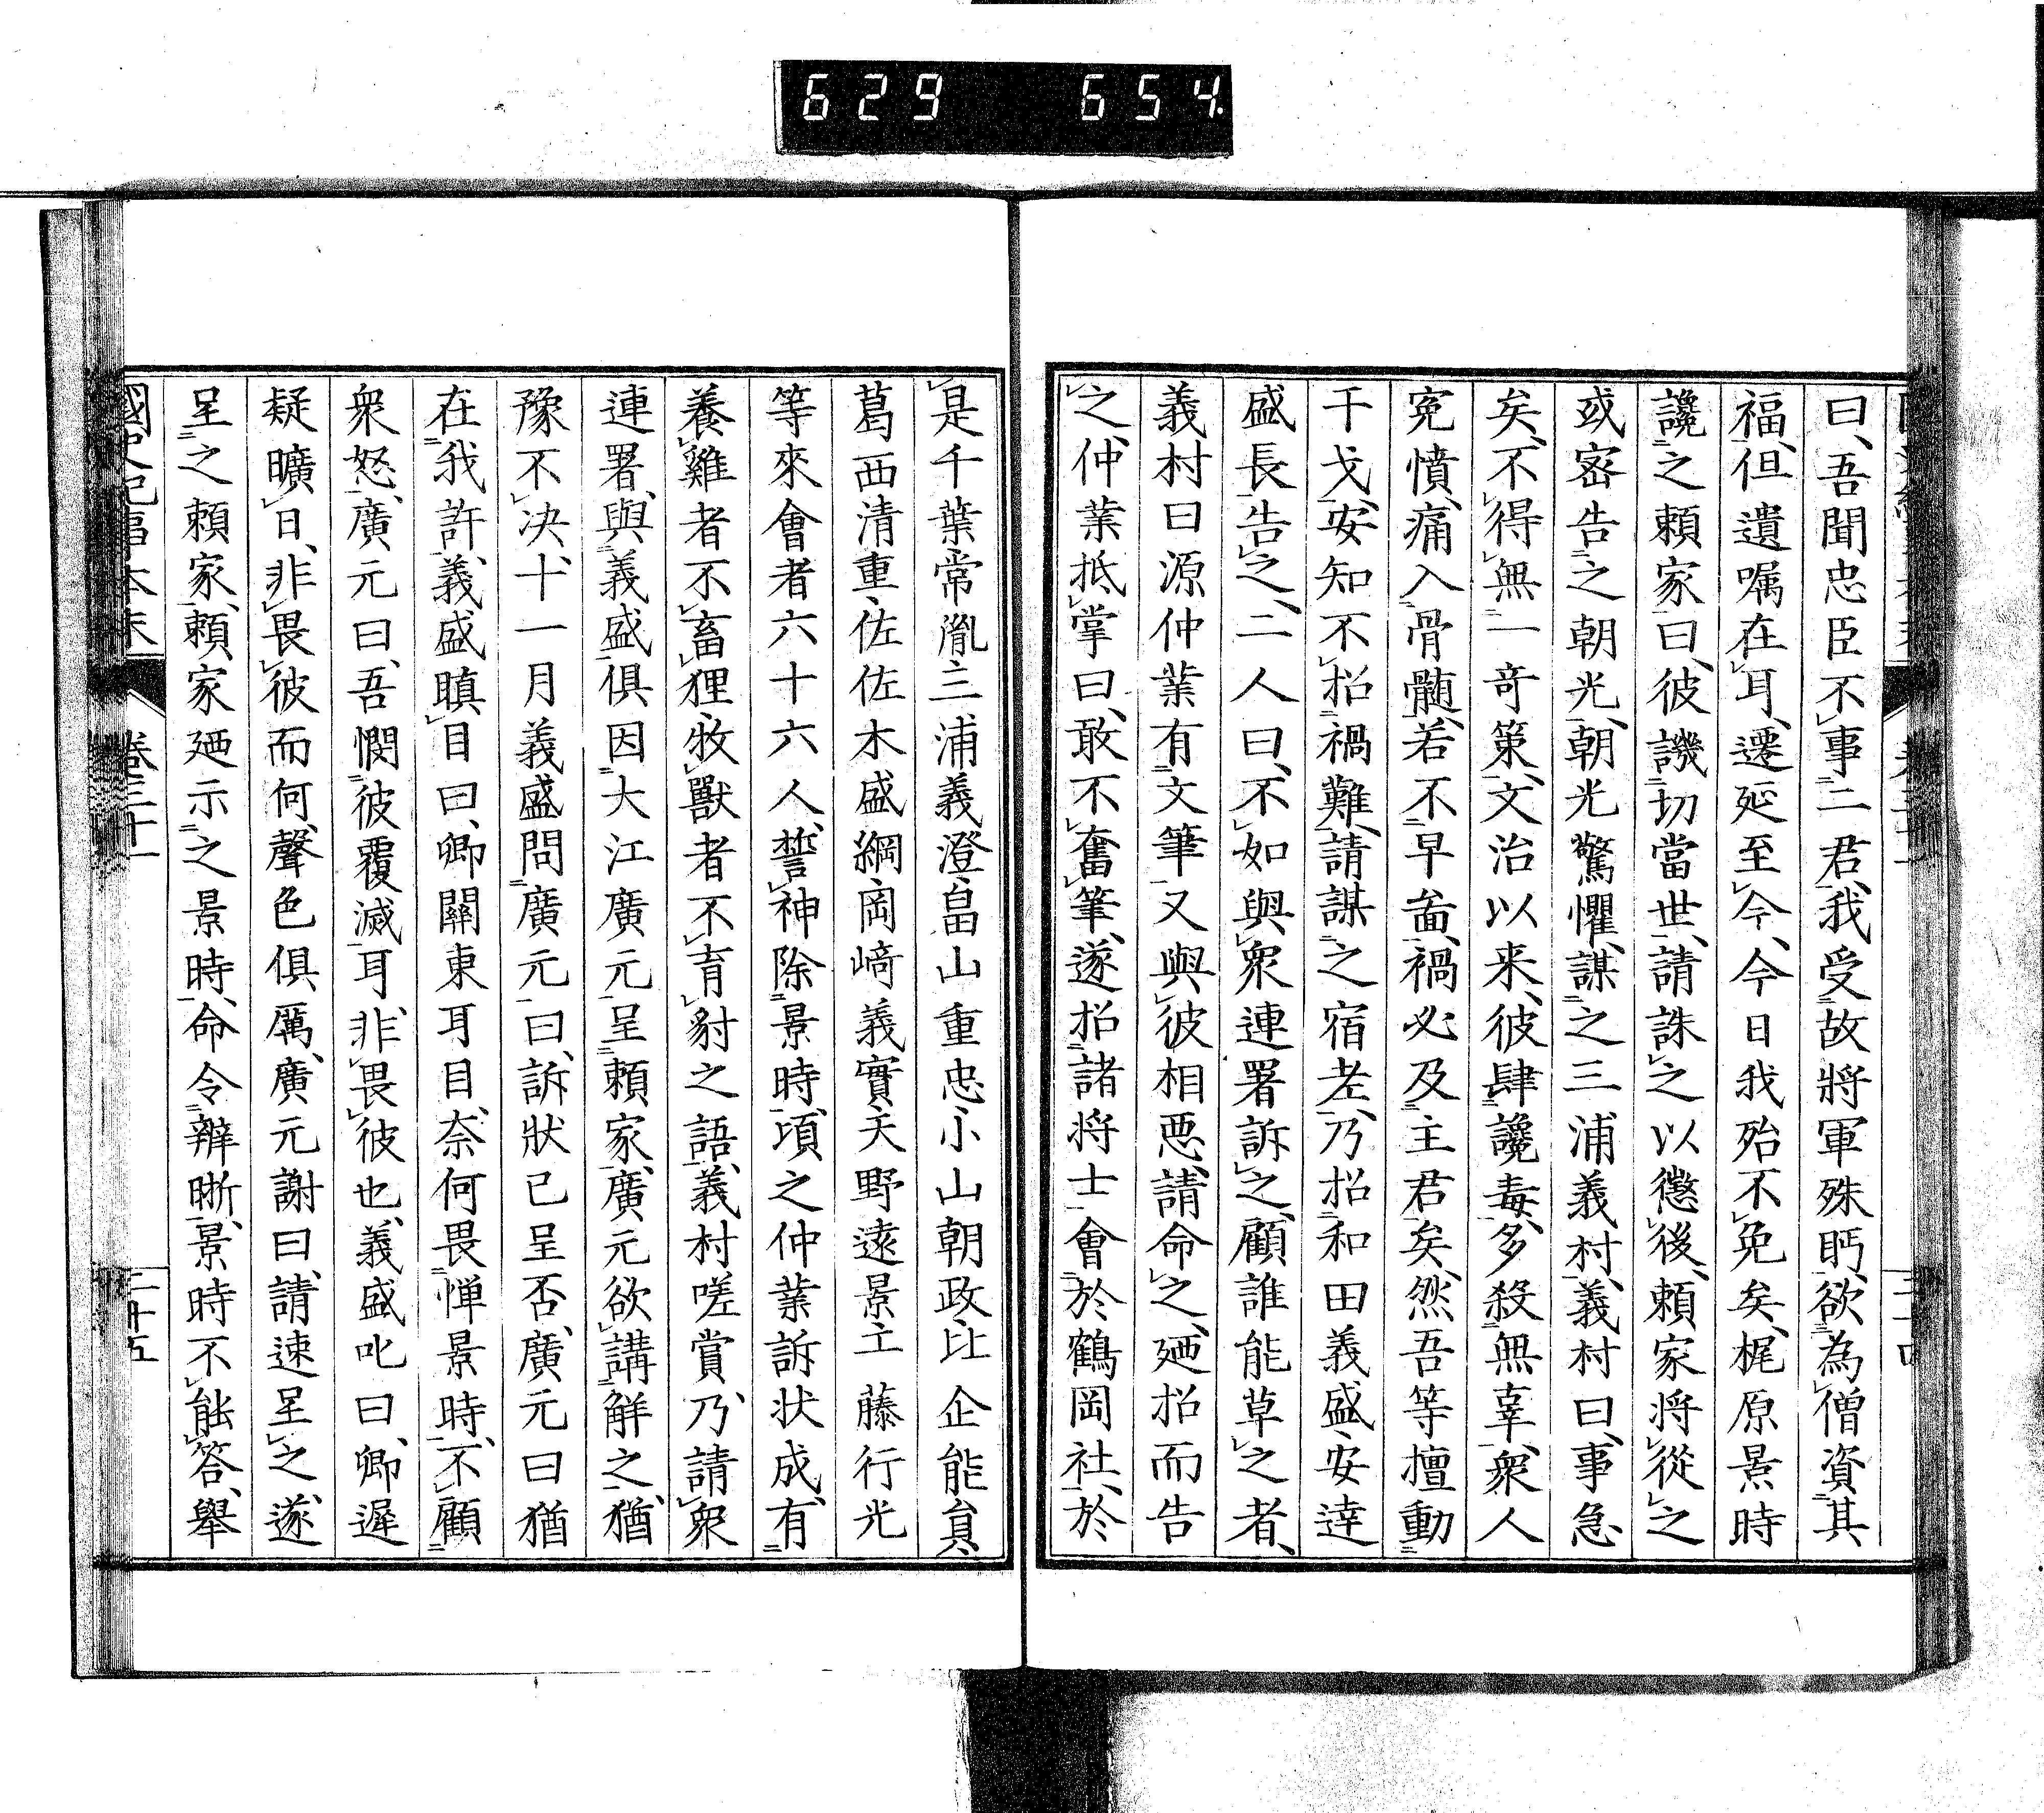 629 654.
曰、吾聞忠臣不事二君、我受故將軍殊眄、欲為僧資其
福、但遺嘱在耳、遷延至今、今日我殆不免矣、梶原景時
讒之頼家曰、彼譏切當世、請誅之以懲後、頼家将從之
或密告之朝光、朝光驚懼、謀之三浦義村、義村曰、事急
矣、不得無一奇策、文治以来、彼肆讒毒、多殺無辜、衆人
寃憤、痛入骨髄、若不早啚、禍必及主君矣、然吾等擅動
干戈、安知不招禍難、請謀之宿老、乃招和田義盛、安達
盛長告之、二人曰、不如與衆連署訴之、顧誰能草之者、
義村曰源仲業有文筆又與彼相悪、請命之、廼招而告
之、仲業抵掌曰、敢不奮筆、遂招諸将士會於鶴岡社、於
是千葉常胤三浦義澄、畠山重忠小山朝政、比企能員、
葛西清重、佐佐木盛綱、岡﨑義實、天野遠景工藤行光
等來會者六十六人、誓神除景時、頃之仲業訴状成、有
養雞者不畜狸、牧獸者不育豺之語、義村嗟賞、乃請衆
連署、與義盛俱因大江廣元呈頼家、廣元欲講解之、猶
豫不决、十一月義盛問廣元曰、訴狀已呈否、廣元曰猶
在我許、義盛瞋目曰、卿關東耳目、奈何畏憚景時、不顧
衆怒、廣元曰、吾憫彼覆滅耳、非畏彼也、義盛叱曰、卿遲
疑曠日、非畏彼而何、聲色俱厲、廣元謝曰、請速呈之、遂
呈之頼家、頼家廼示之景時、命令辨晣、景時不能答、舉
國史紀事本末 卷三十一 二十五